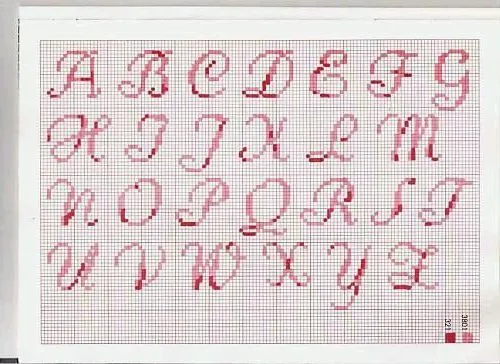 A B C D E F G
H I J K L M
N O P Q R S T
U V W X Y Z
3801
321